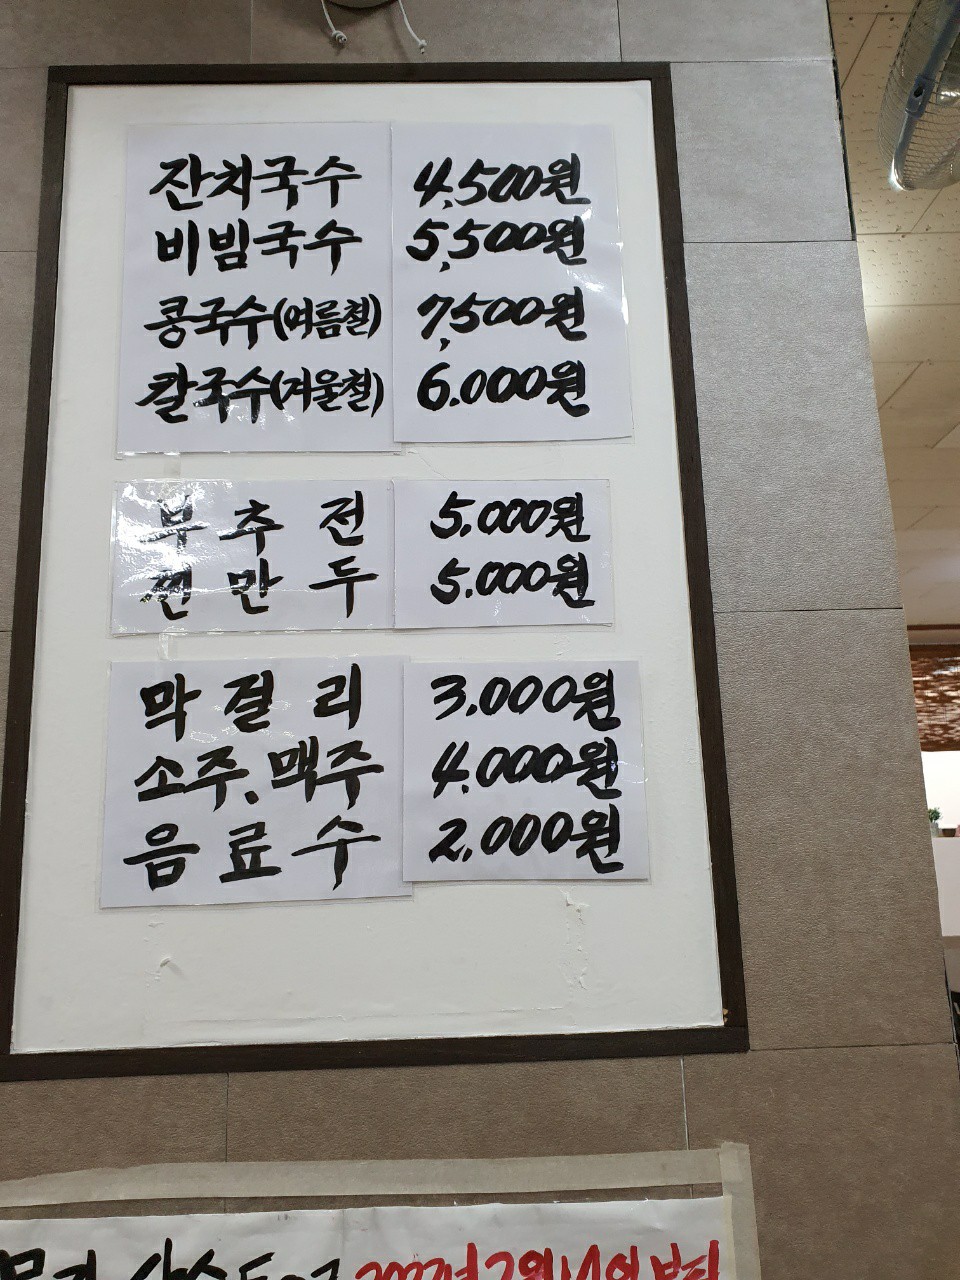 잔치국수 4,500원
비빔국수 5,500원
콩국수(여름철) 7,500원
칼국수(겨울철) 6.000원
부추전 5.000원
찐만두 5.000원
막걸리 3.000원
소주.맥주 4.000원
음료수 2.000원